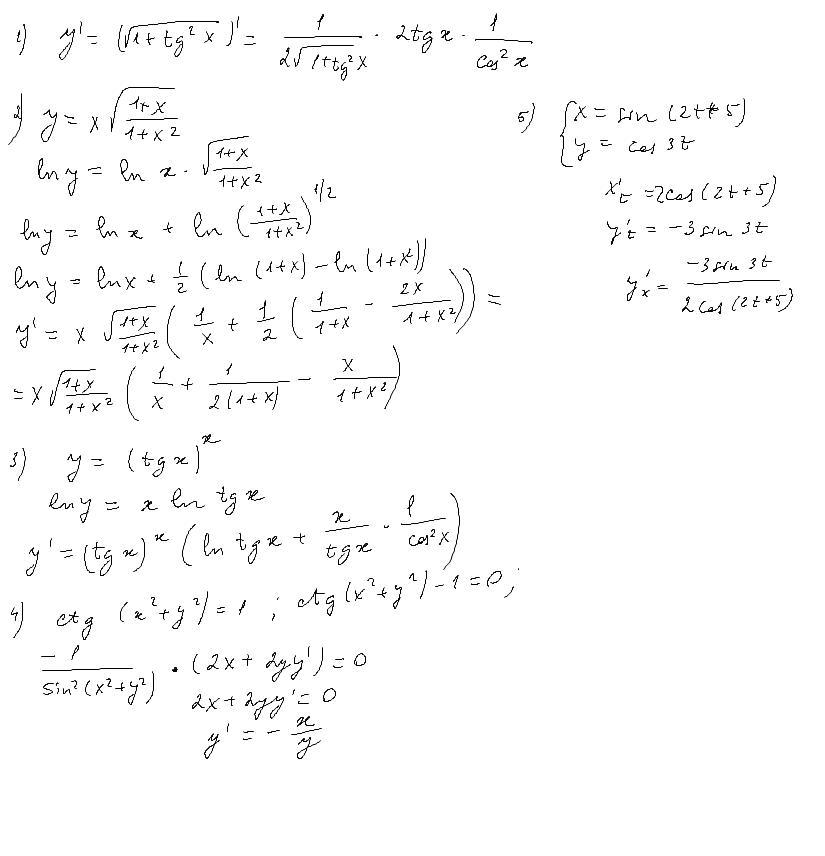 1) y' = (√(1+tg² x))' = 1/(2√(1+tg² x)) · 2tg x · 1/cos² x
2) y = x √((1+x)/(1+x²))
ln y = ln x · √((1+x)/(1+x²))
ln y = ln x + ln ((1+x)/(1+x²))^(1/2)
ln y = ln x + 1/2 (ln (1+x) - ln (1+x²))
y' = x √((1+x)/(1+x²)) (1/x + 1/2 (1/(1+x) - 2x/(1+x²))) =
= x √((1+x)/(1+x²)) (1/x + 1/(2(1+x)) - x/(1+x²))
3) y = (tg x)^x
ln y = x ln tg x
y' = (tg x)^x (ln tg x + x/(tg x) · 1/cos² x)
4) ctg (x²+y²) = 1 ; ctg (x²+y²) - 1 = 0 ;
-1/(sin² (x²+y²)) · (2x + 2yy') = 0
2x + 2yy' = 0
y' = - x/y
5) { x = sin (2t+5)
y = cos 3t
x't = 2cos (2t+5)
y't = -3 sin 3t
y'x = (-3 sin 3t)/(2 cos (2t+5))